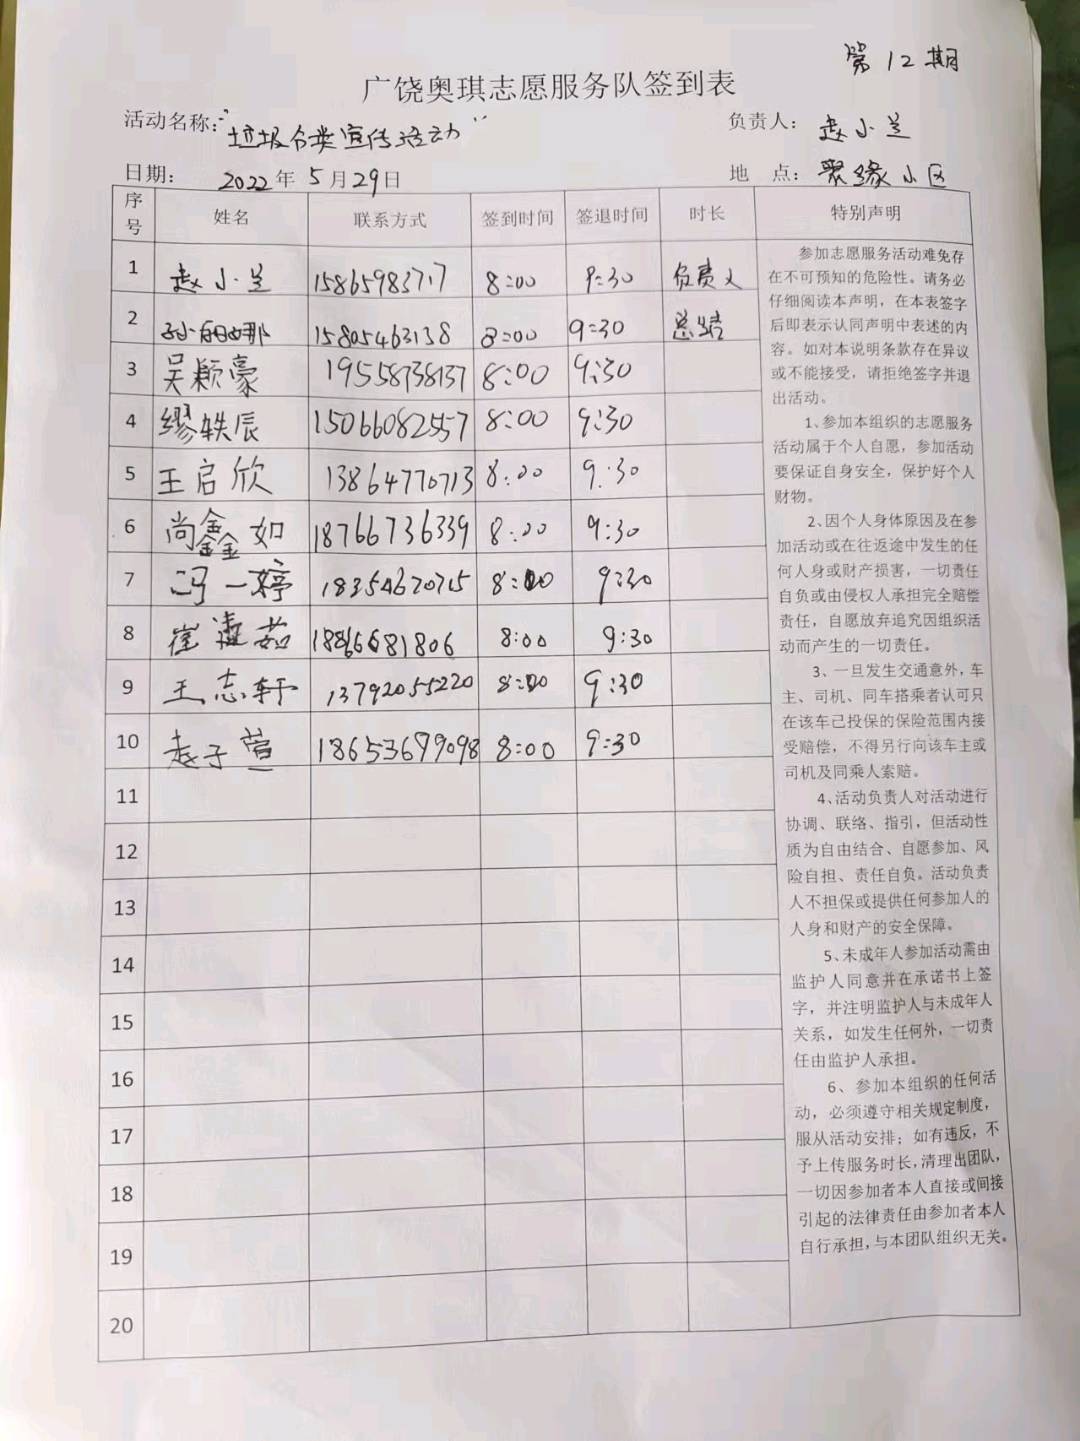 第12期
广饶奥琪志愿服务队签到表
活动名称:"垃圾分类宣传活动" 负责人: 赵小兰
日期: 2022年5月29日 地 点: 聚缘小区
序号 姓名 联系方式 签到时间 签退时间 时长 特别声明
1 赵小兰 15865983717 8:00 9:30 负责人
2 孙丽娜 15805463138 8:00 9:30 总结
3 吴颖豪 19558738137 8:00 9:30
4 缪轶辰 15066082557 8:00 9:30
5 王启欣 13864770713 8:00 9:30
6 尚鑫如 18766736339 8:00 9:30
7 冯一婷 18354670715 8:00 9:30
8 崔 茹 18866681806 8:00 9:30
9 王志轩 13792055220 8:00 9:30
10 赵子萱 18653679098 8:00 9:30
11
12
13
14
15
16
17
18
19
20
参加志愿服务活动难免存
在不可预知的危险性。请务必
仔细阅读本声明，在本表签字
后即表示认同声明中表述的内
容。如对本说明条款存在异议
或不能接受，请拒绝签字并退
出活动。
1、参加本组织的志愿服务
活动属于个人自愿，参加活动
要保证自身安全，保护好个人
财物。
2、因个人身体原因及在参
加活动或在往返途中发生的任
何人身或财产损害，一切责任
自负或由侵权人承担完全赔偿
责任，自愿放弃追究因组织活
动而产生的一切责任。
3、一旦发生交通意外，车
主、司机、同车搭乘者认可只
在该车已投保的保险范围内接
受赔偿，不得另行向该车主或
司机及同乘人索赔。
4、活动负责人对活动进行
协调、联络、指引，但活动性
质为自由结合、自愿参加、风
险自担、责任自负。活动负责
人不担保或提供任何参加人的
人身和财产的安全保障。
5、未成年人参加活动需由
监护人同意并在承诺书上签
字，并注明监护人与未成年人
关系，如发生任何外，一切责
任由监护人承担。
6、参加本组织的任何活
动，必须遵守相关规定制度，
服从活动安排；如有违反，不
予上传服务时长，清理出团队，
一切因参加者本人直接或间接
引起的法律责任由参加者本人
自行承担，与本团队组织无关。